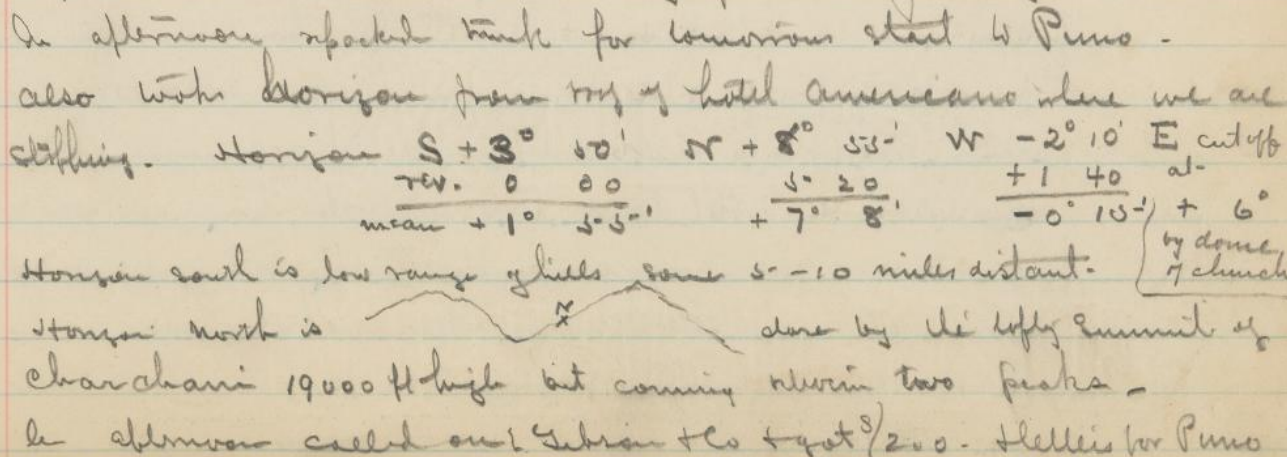 In afternoon repacked trunk for tomorrows start to Puno -
also took Horizon from roof of hotel Americano where we are
stopping. Horizon S + 3° 50' N + 8° 55' W - 2° 10' E cut off
rev. 0 00 5 20 + 1 40 at
mean + 1° 55' + 7° 8' - 0° 15' + 6°
by dome
of church
Horizon south is low range of hills some 5-10 miles distant.
Horizon north is N x done by the lofty summit of
Charchani 19000 ft high but coming between two peaks -
In afternoon called on Gibson & Co & got S/200 - & letters for Puno